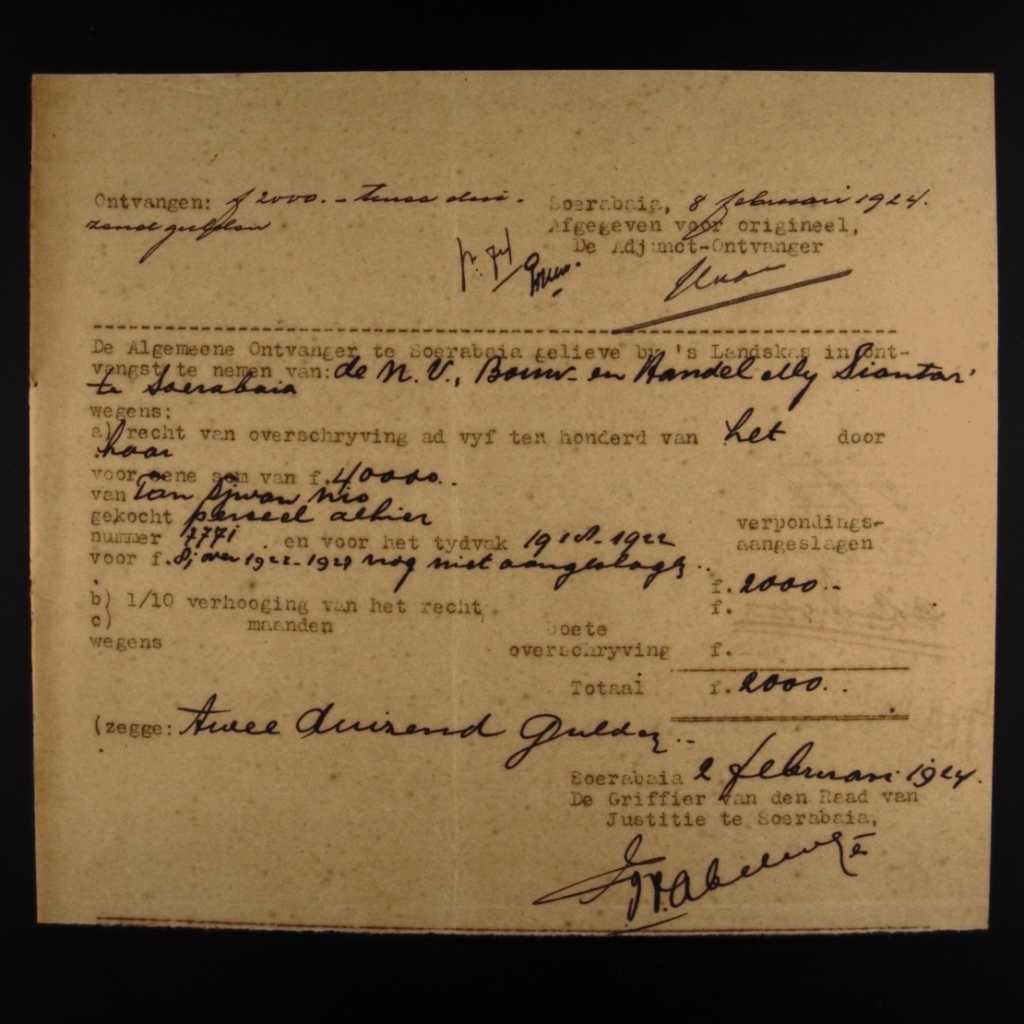 Ontvangen: f 2000.- twee dui-
zend gulden
Soerabaia, 8 februari 1924.
Afgegeven voor origineel,
De Adjunct-Ontvanger
De Algemeene Ontvanger te Soerabaia gelieve by 's Landskas in ont-
vangst te nemen van: de N.V., Bouw- en Handel My Siantar
te Soerabaia
wegens:
a) recht van overschryving ad vyf ten honderd van het door
haar
voor eene som van f. 40000..
van Tan Sjwan Nio
gekocht perceel alhier
nummer 7771 en voor het tydvak 1918-1922 verpondings-
aangeslagen
voor f. over 1922-1924 nog niet aangeslagen..
f. 2000.-
b) 1/10 verhooging van het recht f.
c) maanden boete
wegens overschryving f.
Totaal f. 2000..
(zegge: twee duizend Gulden..
Soerabaia 2 februari 1924.
De Griffier van den Raad van
Justitie te Soerabaia,